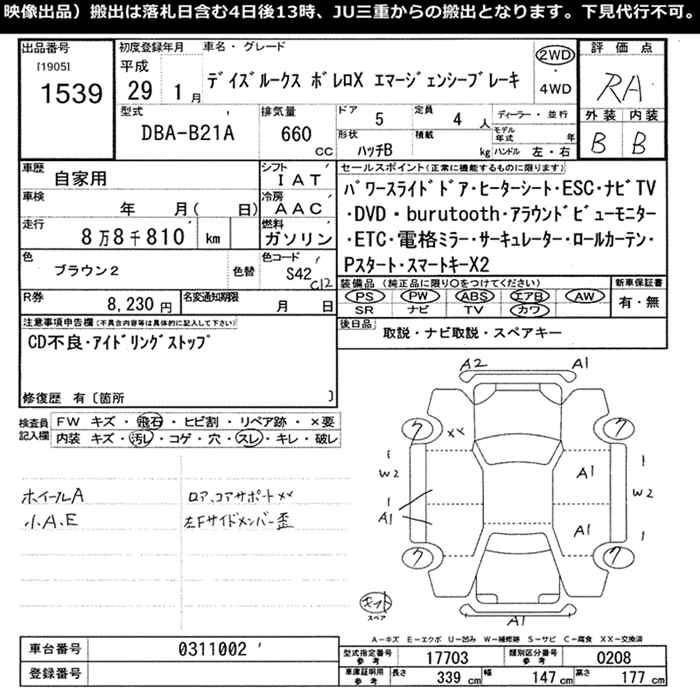 映像出品）搬出は落札日含む4日後13時、JU三重からの搬出となります。下見代行不可。
出品番号
[1905]
1539
初度登録年月
平成
29 1月
車名・グレード
デイズルークス ボレロX エマージェンシーブレーキ
2WD
・
4WD
評価点
RA
外装 内装
B B
型式
DBA-B21A
排気量
660
CC
ドア
5
定員
4 人
ディーラー・並行
形状
ハッチB
積載
kg
モデル年式 年
ハンドル 左・右
車歴
自家用
シフト
IAT
車検
年 月( 日)
冷房
AAC
走行
8万8千810 km
燃料
ガソリン
色
ブラウン2
色替
色コード
S42
C12
R券
8,230 円
名変通知期限
月 日
セールスポイント(正常に機能するものに限ります)
パワースライドドア・ヒーターシート・ESC・ナビTV
・DVD・burutooth・アラウンドビューモニター
・ETC・電格ミラー・サーキュレーター・ロールカーテン・
Pスタート・スマートキーX2
装備品(純正品に限り○をつけてください)
PS PW ABS エアB AW
SR ナビ TV カワ
新車保証書
有・無
後日品
取説・ナビ取説・スペアキー
注意事項申告欄(不具合内容等は具体的に記入して下さい)
CD不良・アイドリングストップ
修復歴 有〔箇所 〕
検査員記入欄
FW キズ・飛石・ヒビ割・リペア跡・×要
内装 キズ・汚レ・コゲ・穴・スレ・キレ・破レ
ホイールA
小A、E
ロア、コアサポートXX
左Fサイドメンバー歪
A2
A1
ク
XX
ク
1
W2
1
A1
A1
A1
1
W2
1
ク
ク
スペア
A1
A－キズ E－エクボ U－凹み W－補修跡 S－サビ C－腐食 XX－交換済
車台番号
0311002
登録番号
型式指定番号
参考
17703
類別区分番号
参考
0208
車庫証明用
参考
長さ
339 cm
幅
147 cm
高さ
177 cm